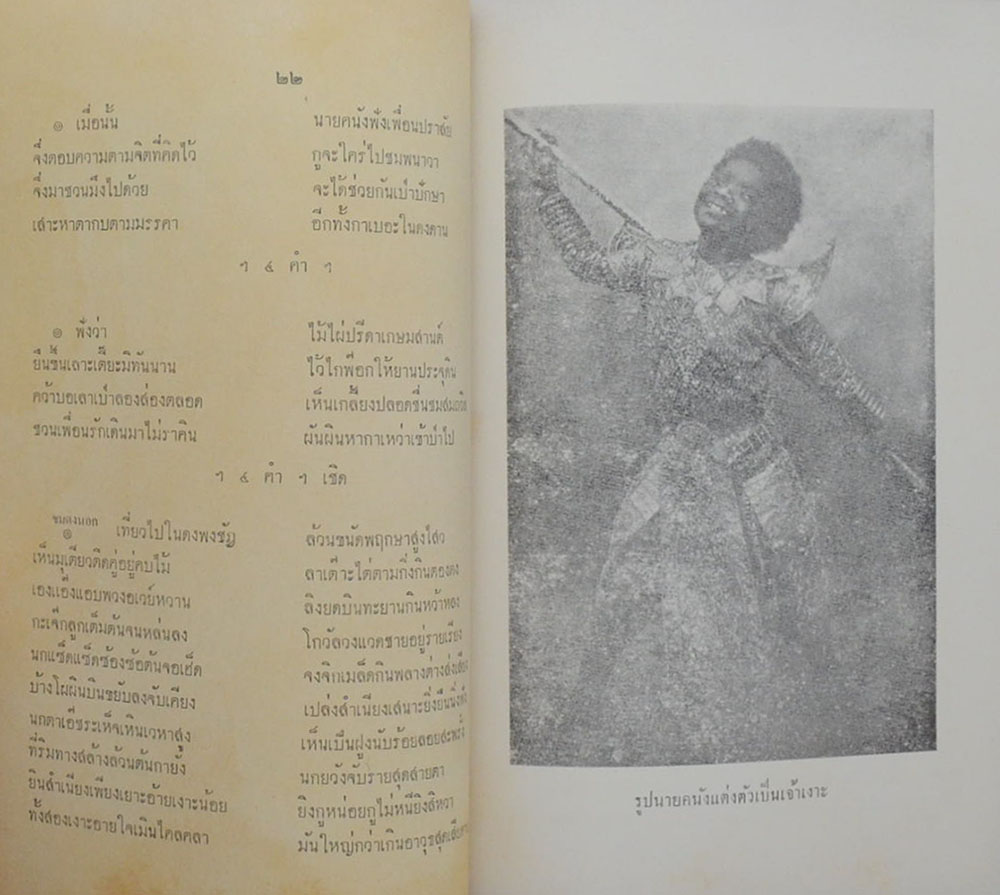 ๒๒
๏ เมื่อนั้น นายคนังฟังเพื่อนปราศัย
จึ่งตอบความตามจิตที่คิดไว้ กูจะใคร่ไปชมพนาวา
จึ่งมาชวนมึงไปด้วย จะได้ช่วยกันเป่าปักษา
เสาะหาตากบตามมรรคา อีกทั้งกาเบอะในดงดาน
ฯ ๔ คำ ฯ
๏ ฟังว่า ไม้ไผ่ปรีดาเกษมสานต์
ยืนขึ้นเลาะเตี๊ยะมิทันนาน ไว้ไกพ๊อกให้ยานประจุดิน
คว้าบอเลาเป่าลองล่องตลอด เห็นเกลี้ยงปลอดชื่นชม
ชวนเพื่อนรักเดินมาไม่ราคิน ผันผินหากาเหว่าเข้าป่าไป
ฯ ๔ คำ ฯ เชิด
ชมดงนอก
๏ เที่ยวไปในดงพงชัฏ ล้วนขนัดพฤกษาสูงไสว
เห็นมุเตียวติดคู่อยู่คบไม้ ลาเต๊าะไต่ตามกิ่งกินตองตง
เองเเอ็งแอบพวงอเวย์หวาน ลิงยดบินทะยานกินหว้าหง
กะเจ๊กลูกเต็มต้นจนหล่นลง โกวัลวงแวดชายอยู่รายเรียง
นกแซ็ดแซ็ดซ้องซ้อต้นจอเฮ็ด จงจิกเมล็ดกินพลางต่างส่งเสียง
บ้างโผผินบินขยับลงจับเคียง เปล่งสำเนียงเสนาะยิ่ง
นกตาเอ๊ชระเห็จเหินเวหาสูง เห็นเป็นฝูงนับร้อยลอยสะพรั่ง
ที่ริมทางสล้างล้วนต้นกายั้ง นกยวังจับรายสุดสายตา
ยินสำเนียงเพียงเยาะอ้ายเงาะน้อย ยิงกูหน่อยกูไม่หนียิงสิหวา
ทั้งสองเงาะอายใจเมินไคลคลา มันใหญ่กว่าเกินอาวุธ
รูปนายคนังแต่งตัวเป็นเจ้าเงาะ